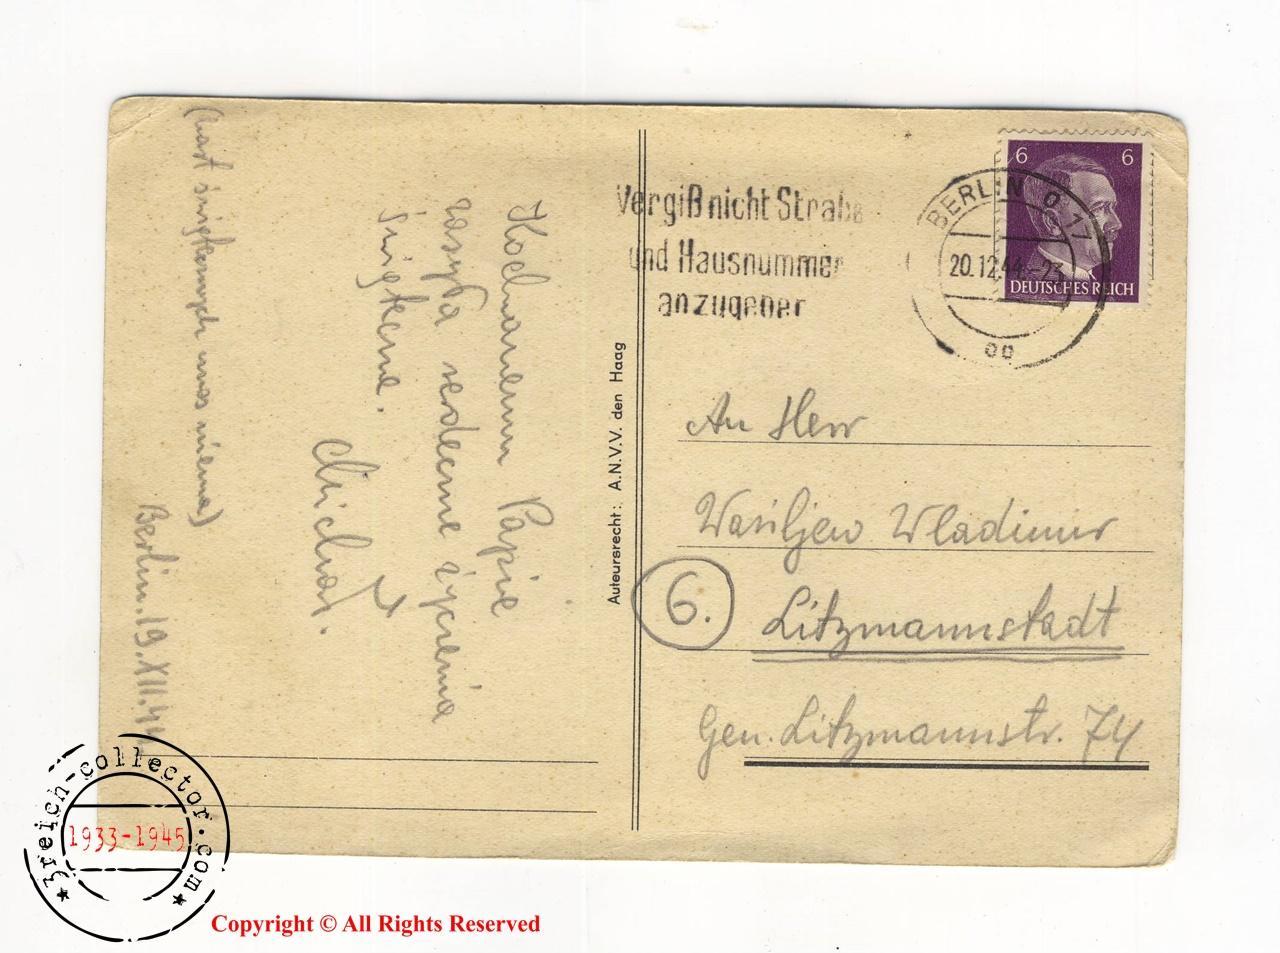 (kart świątecznych u nas niema)
Berlin. 19.XII.44
Kochanemu Papie
zasyła serdeczne życzenia
świąteczne.
Michał.
Auteursrecht: A.N.V.V. den Haag
Vergiß nicht Straße
und Hausnummer
anzugeben
BERLIN O 17
20.12.44.-23
oo
6 6
DEUTSCHES REICH
An Herr
Wasiljew Wladimir
6.
Litzmannstadt
Gen. Litzmannstr. 74
3reich-collector.com
1933-1945
Copyright © All Rights Reserved